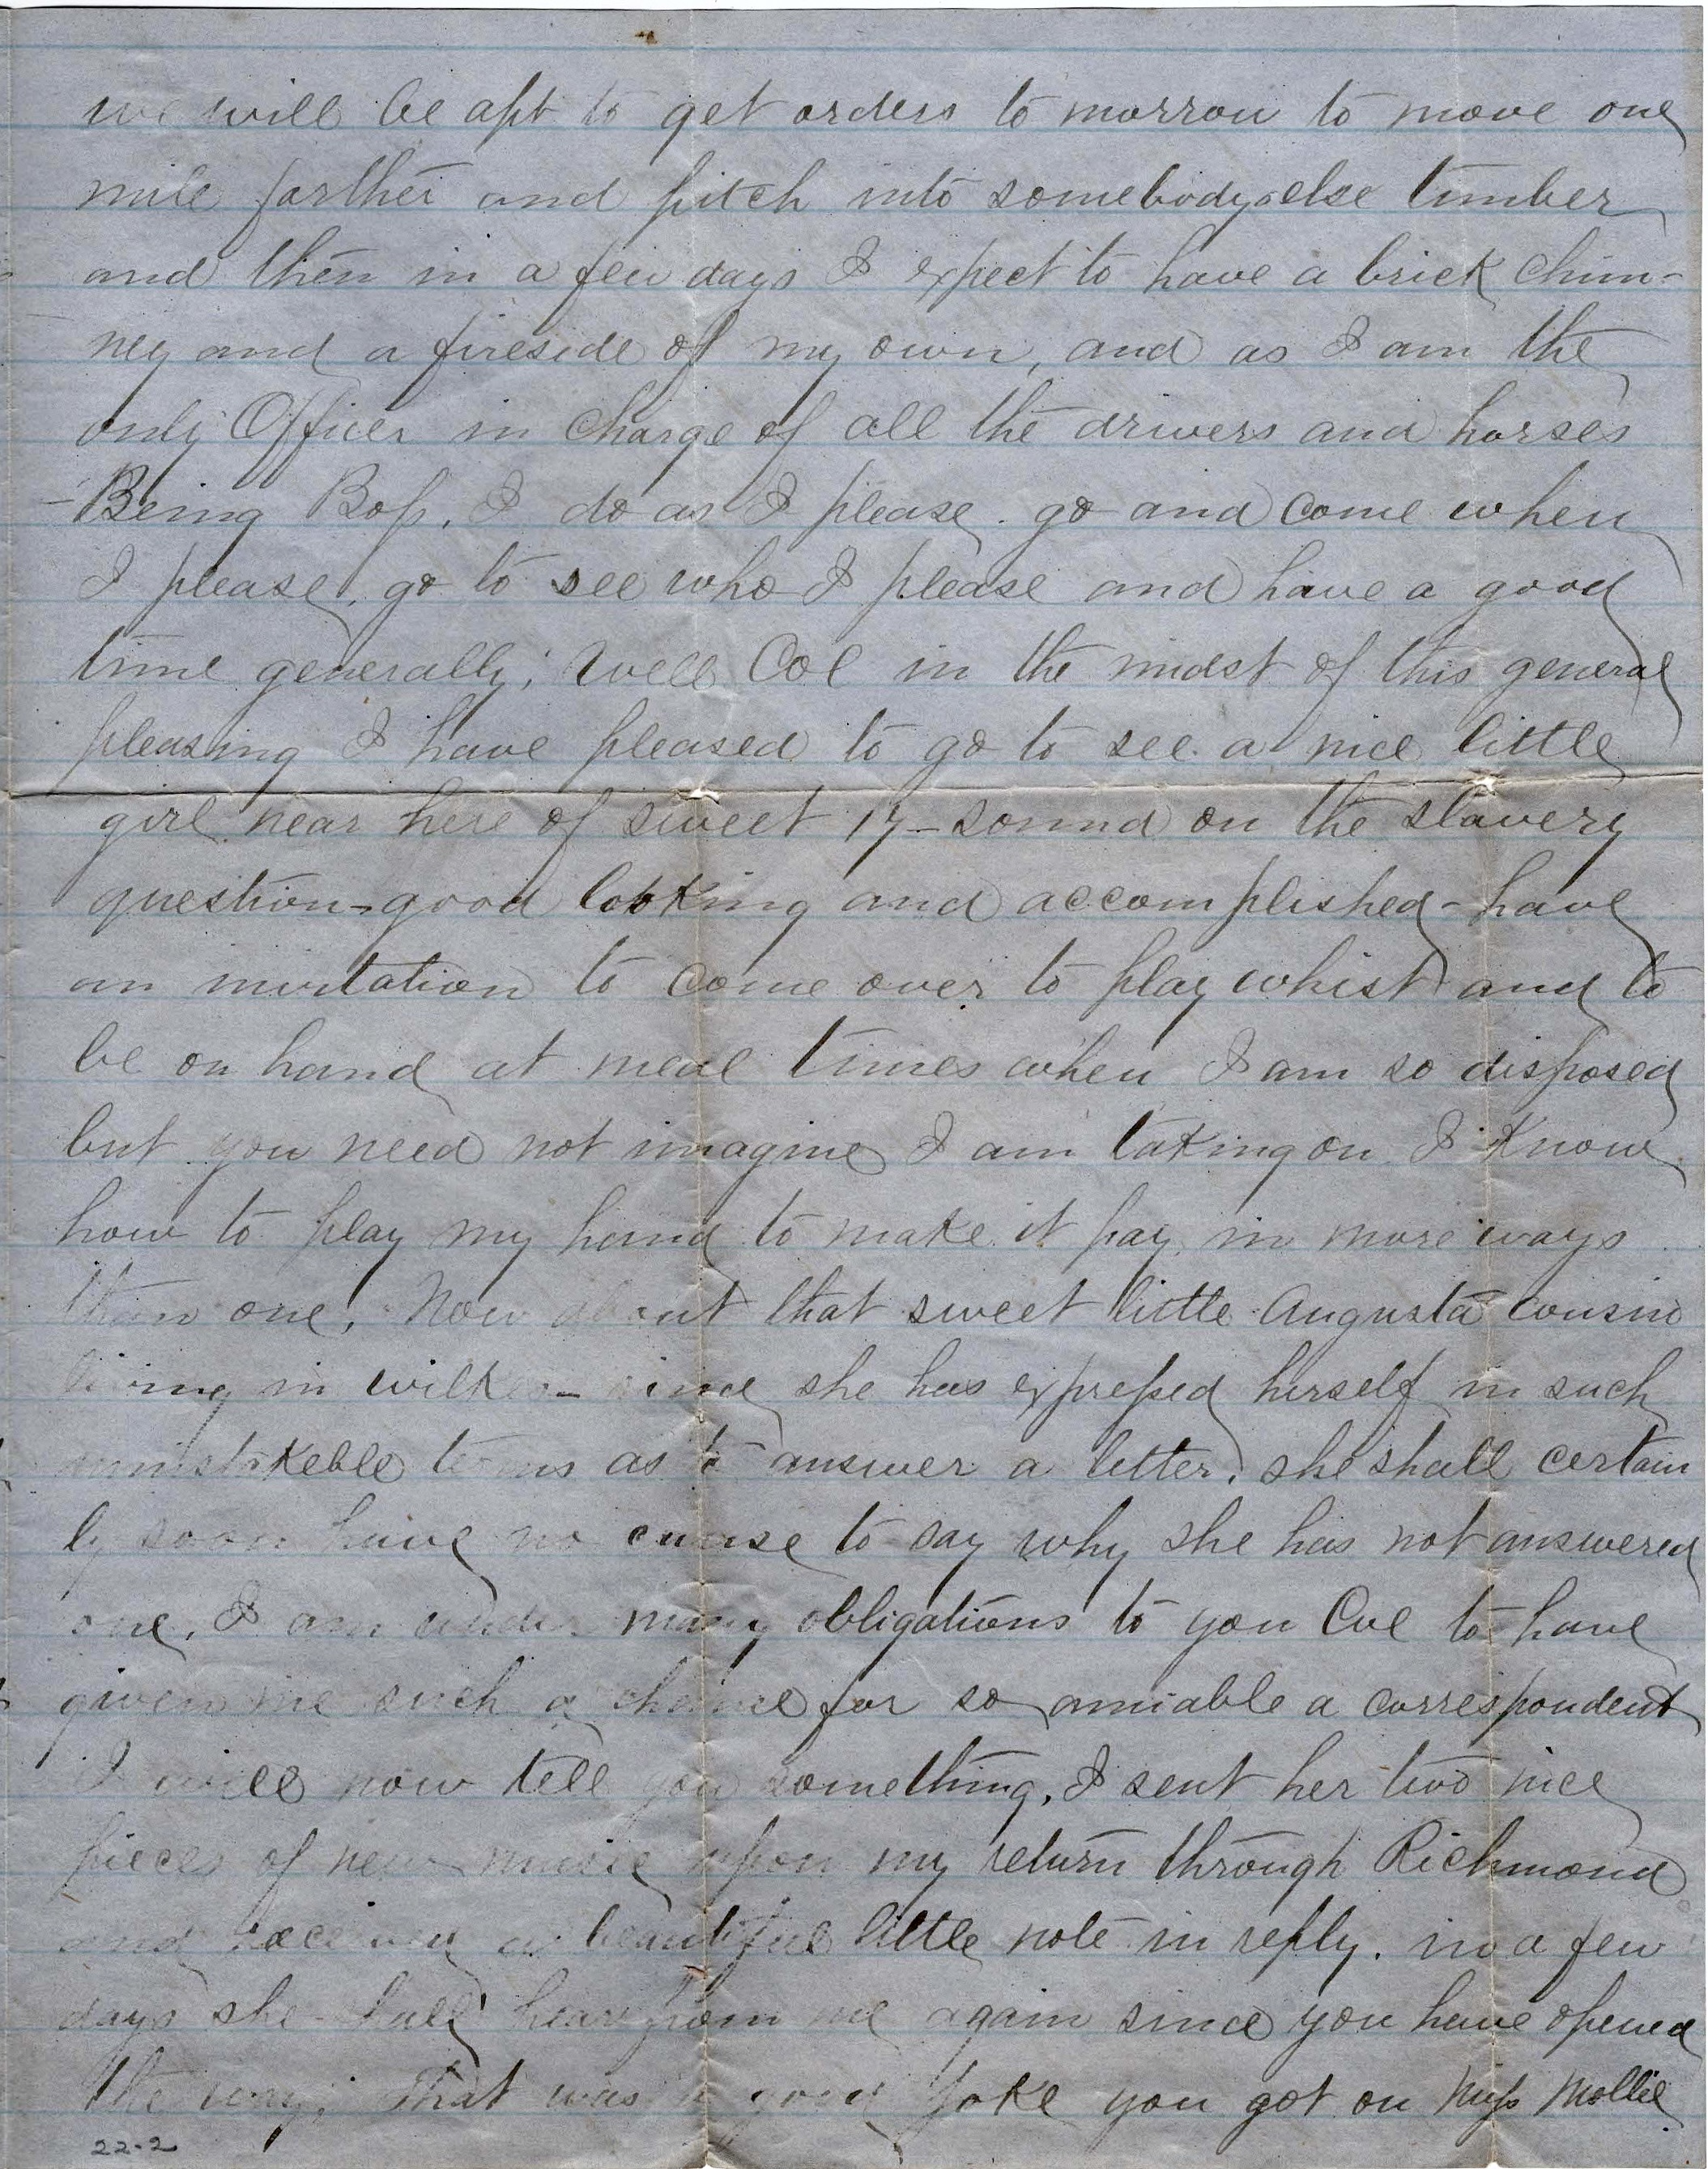 we will be apt to get orders to morrow to move one
mile farther and pitch into somebody else timber
and then in a few days I expect to have a brick chim-
ney and a fireside of my own, and as I am the
only Officer in charge of all the drivers and horses
- Being Boss, I do as I please. go and come when
I please, go to see who I please and have a good
time generally; Well Col in the midst of this general
pleasing I have pleased to go to see a nice little
girl near here of sweet 17 - sound on the slavery
question - good looking and accomplished - have
an invitation to come over to play whist and to
be on hand at meal times when I am so disposed
but you need not imagine I am taking on I know
how to play my hand to make it pay in more ways
than one. Now about that sweet little Augusta cousin
living in wilkes - since she has expressed herself in such
unmistakeble terms as to answer a letter, she shall certain
ly soon have no cause to say why she has not answered
one, I am under many obligations to you Col to have
given me such a chance for so amiable a correspondent
I will now tell you something, I sent her two nice
pieces of new music upon my return through Richmond
and received a beautiful little note in reply. in a few
days she shall hear from me again since you have opened
the way; that was a good joke you got on Miss Mollie
22-2